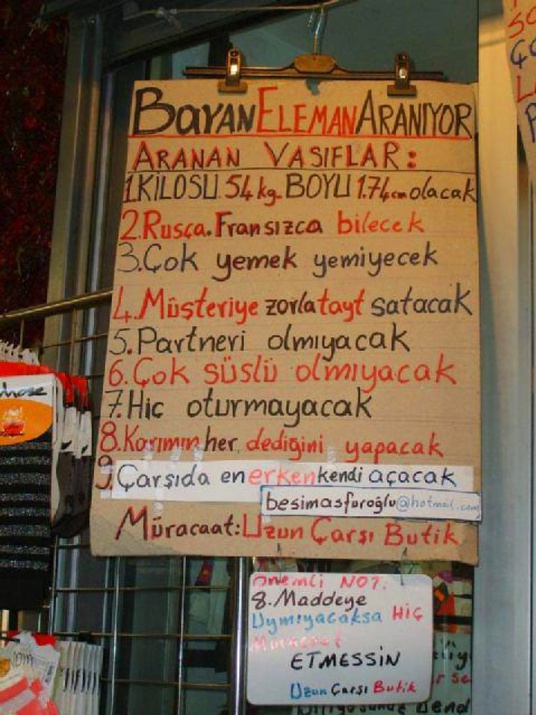 BAYAN ELEMAN ARANIYOR
ARANAN VASIFLAR:
1.KİLOSU 54 kg. BOYU 1.74 cm olacak
2.Rusça.Fransızca bilecek
3.Çok yemek yemiyecek
4.Müşteriye zorla tayt satacak
5.Partneri olmıyacak
6.Çok süslü olmıyacak
7.Hiç oturmayacak
8.Karımın her dediğini yapacak
9.Çarşıda en erken kendi açacak
besimasfuroğlu@hotmail.com
Müracaat:Uzun Çarşı Butik
Önemli NOT.
8.Maddeye
Uymıyacaksa HİÇ
Müracaat
ETMESSİN
Uzun Çarşı Butik